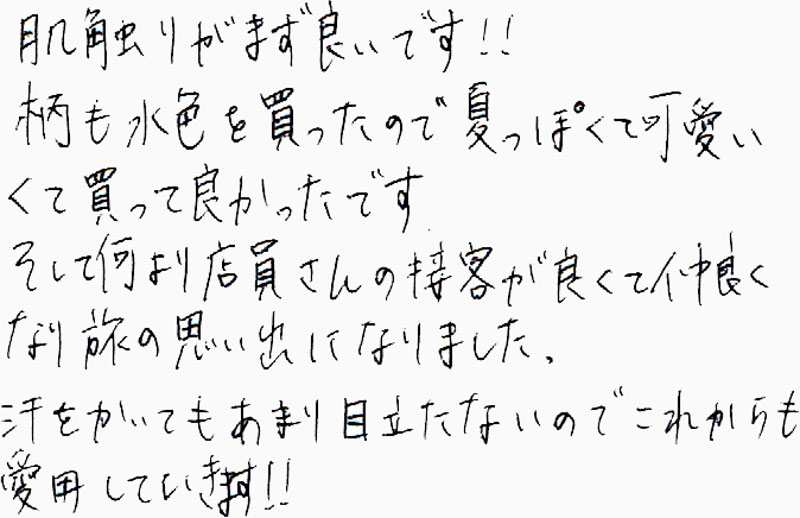 肌触りがまず良いです!!
柄も水色を買ったので夏っぽくて可愛い
くて買って良かったです
そして何より店員さんの接客が良くて仲良く
なり旅の思い出になりました、
汗をかいてもあまり目立たないのでこれからも
愛用していきます!!